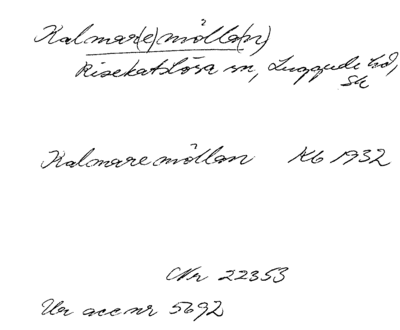 Kalmar(e)mölla(n)
Risekatslösa sn, Luggude hd,
Sk
Kalmaremöllan Kb 1932
Nr 22353
Ur acc nr 5692